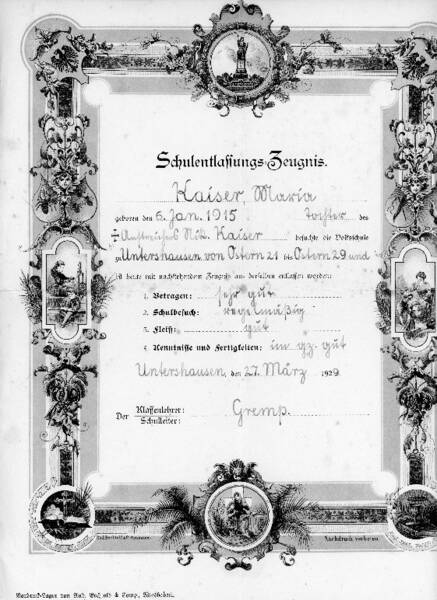 Schulentlassungs-Zeugnis.
Kaiser, Maria
geboren den 6. Jan. 1915 Tochter des
† Anstreichers Nik. Kaiser besuchte die Volksschule
zu Untershausen von Ostern 21 bis Ostern 29 und
ist heute mit nachstehendem Zeugnis aus derselben entlassen worden:
1. Betragen: sehr gut
2. Schulbesuch: regelmäßig
3. Fleiß: gut
4. Kenntnisse und Fertigkeiten: im gz. gut
Untershausen, den 27. März 1929
Der Klassenlehrer:
Schulleiter:
Gremp.
Nachdruck verboten
Vordruck-Lager von & Comp.,